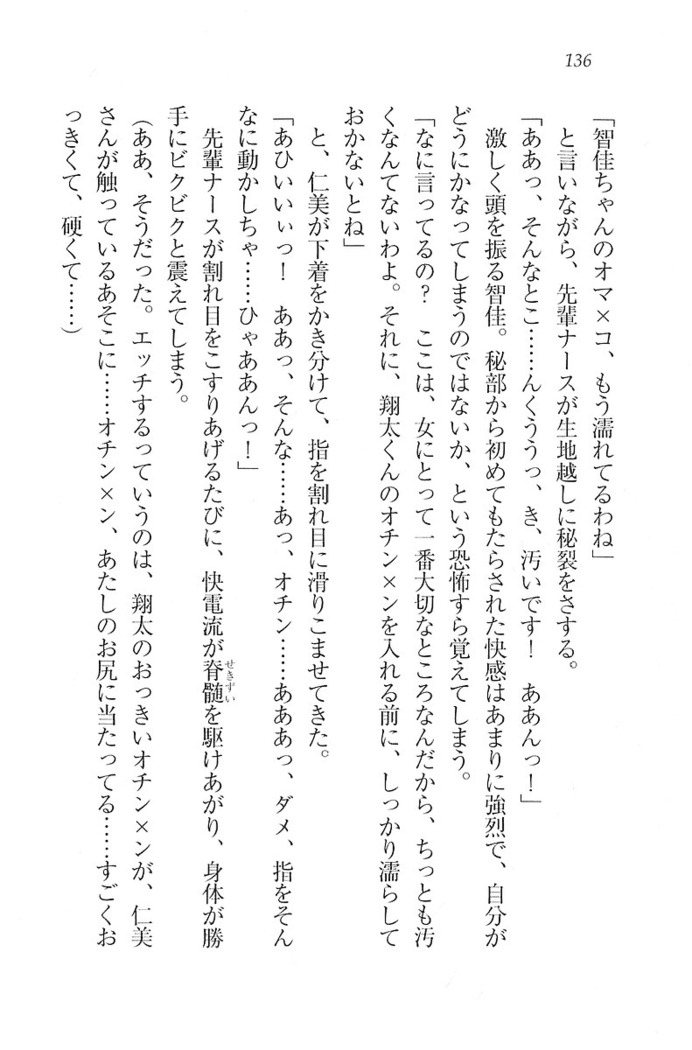 136
「智佳ちゃんのオマ×コ、もう濡れてるわね」
と言いながら、先輩ナースが生地越しに秘裂をさする。
「ああっ、そんなとこ……んくううっ、き、汚いです！　ああんっ！」
激しく頭を振る智佳。秘部から初めてもたらされた快感はあまりに強烈で、自分が
どうにかなってしまうのではないか、という恐怖すら覚えてしまう。
「なに言ってるの？　ここは、女にとって一番大切なところなんだから、ちっとも汚
くなんてないわよ。それに、翔太くんのオチン×ンを入れる前に、しっかり濡らして
おかないとね」
と、仁美が下着をかき分けて、指を割れ目に滑りこませてきた。
「あひいいぃっ！　ああっ、そんな……あっ、オチン……あああっ、ダメ、指をそん
なに動かしちゃ……ひゃああんっ！」
先輩ナースが割れ目をこすりあげるたびに、快電流が脊髄せきずいを駆けあがり、身体が勝
手にビクビクと震えてしまう。
（ああ、そうだった。エッチするっていうのは、翔太のおっきいオチン×ンが、仁美
さんが触っているあそこに……オチン×ン、あたしのお尻に当たってる……すごくお
っきくて、硬くて……）